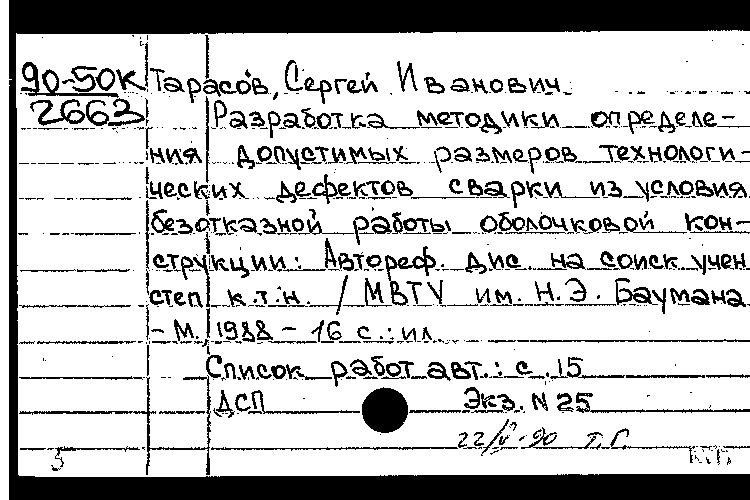 90-50к Тарасов, Сергей Иванович
2663 Разработка методики определе-
ния допустимых размеров технологи-
ческих дефектов сварки из условия
безотказной работы оболочковой кон-
струкции: Автореф. дис. на соиск учен
степ к.т.н. / МВТУ им. Н.Э. Баумана
- М. 1988 - 16 с.: ил.
Список работ авт.: с.15
ДСП Экз. N 25
22/V-90 т.г.